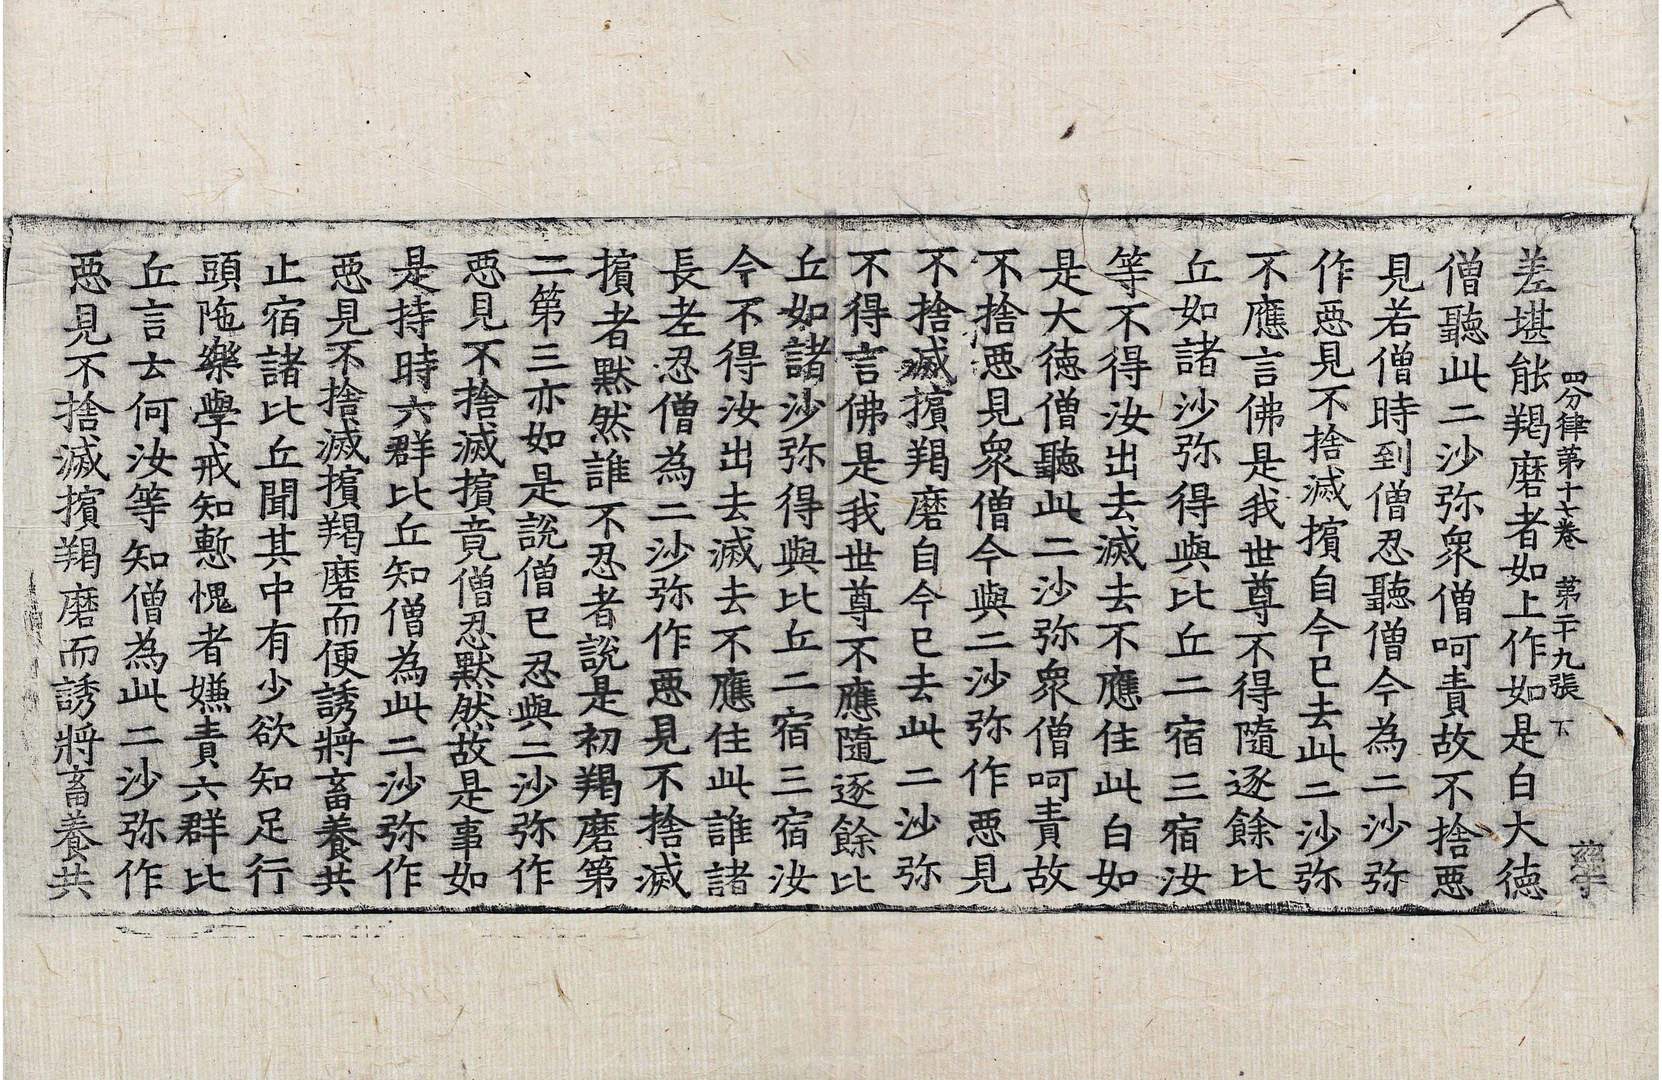 四分律第十七卷 第二十九張 下
差堪能羯磨者如上作如是白大徳
僧聽此二沙弥衆僧呵責故不捨惡
見若僧時到僧忍聽僧今為二沙弥
作惡見不捨滅擯自今已去此二沙弥
不應言佛是我世尊不得隨逐餘比
丘如諸沙弥得與比丘二宿三宿汝
等不得汝出去滅去不應住此白如
是大徳僧聽此二沙弥衆僧呵責故
不捨惡見衆僧今與二沙弥作惡見
不捨滅擯羯磨自今已去此二沙弥
不得言佛是我世尊不應隨逐餘比
丘如諸沙弥得與比丘二宿三宿汝
今不得汝出去滅去不應住此誰諸
長老忍僧為二沙弥作惡見不捨滅
擯者默然誰不忍者說是初羯磨第
二第三亦如是說僧已忍與二沙弥作
惡見不捨滅擯竟僧忍默然故是事如
是持時六群比丘知僧為此二沙弥作
惡見不捨滅擯羯磨而便誘將畜養共
止宿諸比丘聞其中有少欲知足行
頭陁樂學戒知慙愧者嫌責六群比
丘言云何汝等知僧為此二沙弥作
惡見不捨滅擯羯磨而誘將畜養共